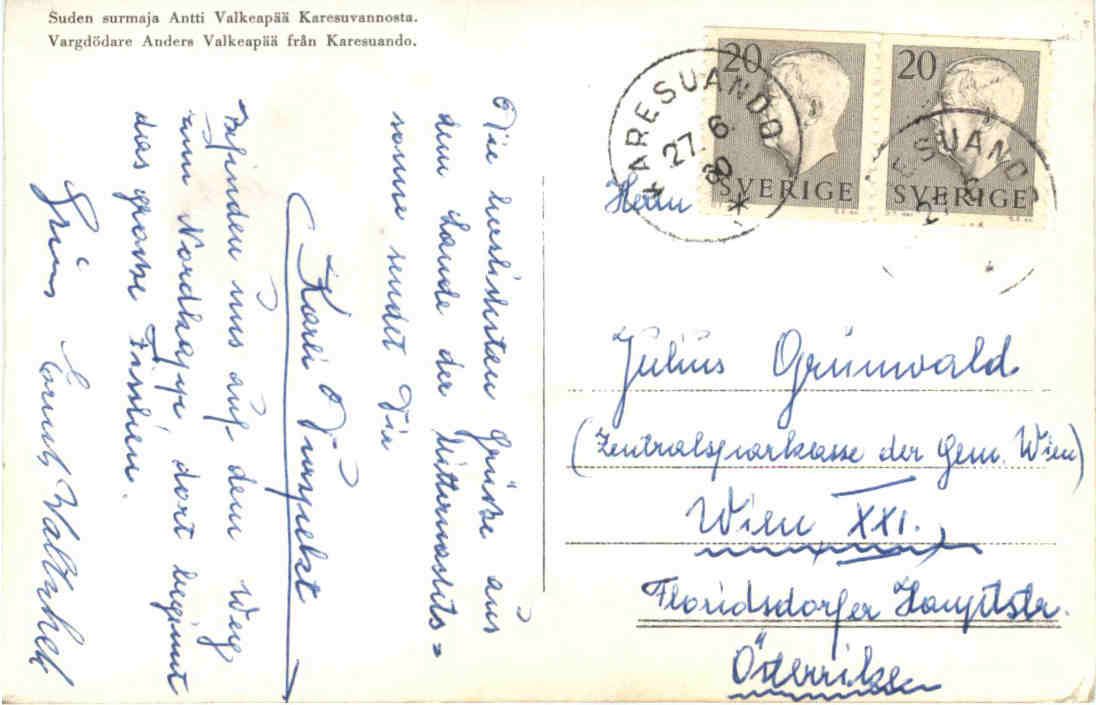 Suden surmaja Antti Valkeapää Karesuvannosta.
Vargdödare Anders Valkeapää från Karesuando.
Die herzlichsten Grüsse aus
dem Lande der Mitternachts=
sonne sendet Dir
Karli
Befinden uns auf dem Weg
zum Nordkapp, dort beginnt
das grosse Fischen.
Ernst
20
SVERIGE
20
SVERIGE
KARESUANDO
27. 6
60
ESUANDO
Herrn
Julius Grünwald
(Zentralsparkasse der Gem. Wien)
Wien XXI.
Floridsdorfer Hauptstr.
Österriken